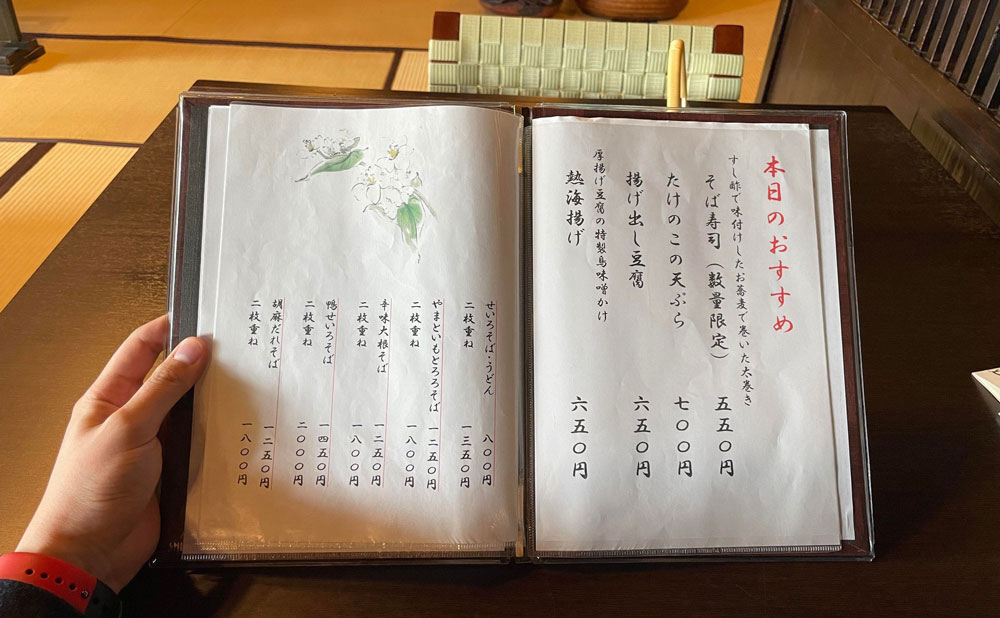 本日のおすすめ
すし酢で味付けしたお蕎麦で巻いた太巻き
そば寿司（数量限定） 五五〇円
たけのこの天ぷら 七〇〇円
揚げ出し豆腐 六五〇円
厚揚げ豆腐の特製鳥味噌かけ
熱海揚げ 六五〇円
せいろそば・うどん 八〇〇円
二枚重ね 一三五〇円
やまといもとろろそば 一二五〇円
二枚重ね 一八〇〇円
辛味大根そば 一二五〇円
二枚重ね 一八〇〇円
鴨せいろそば 一四五〇円
二枚重ね 二〇〇〇円
胡麻だれそば 一二五〇円
二枚重ね 一八〇〇円